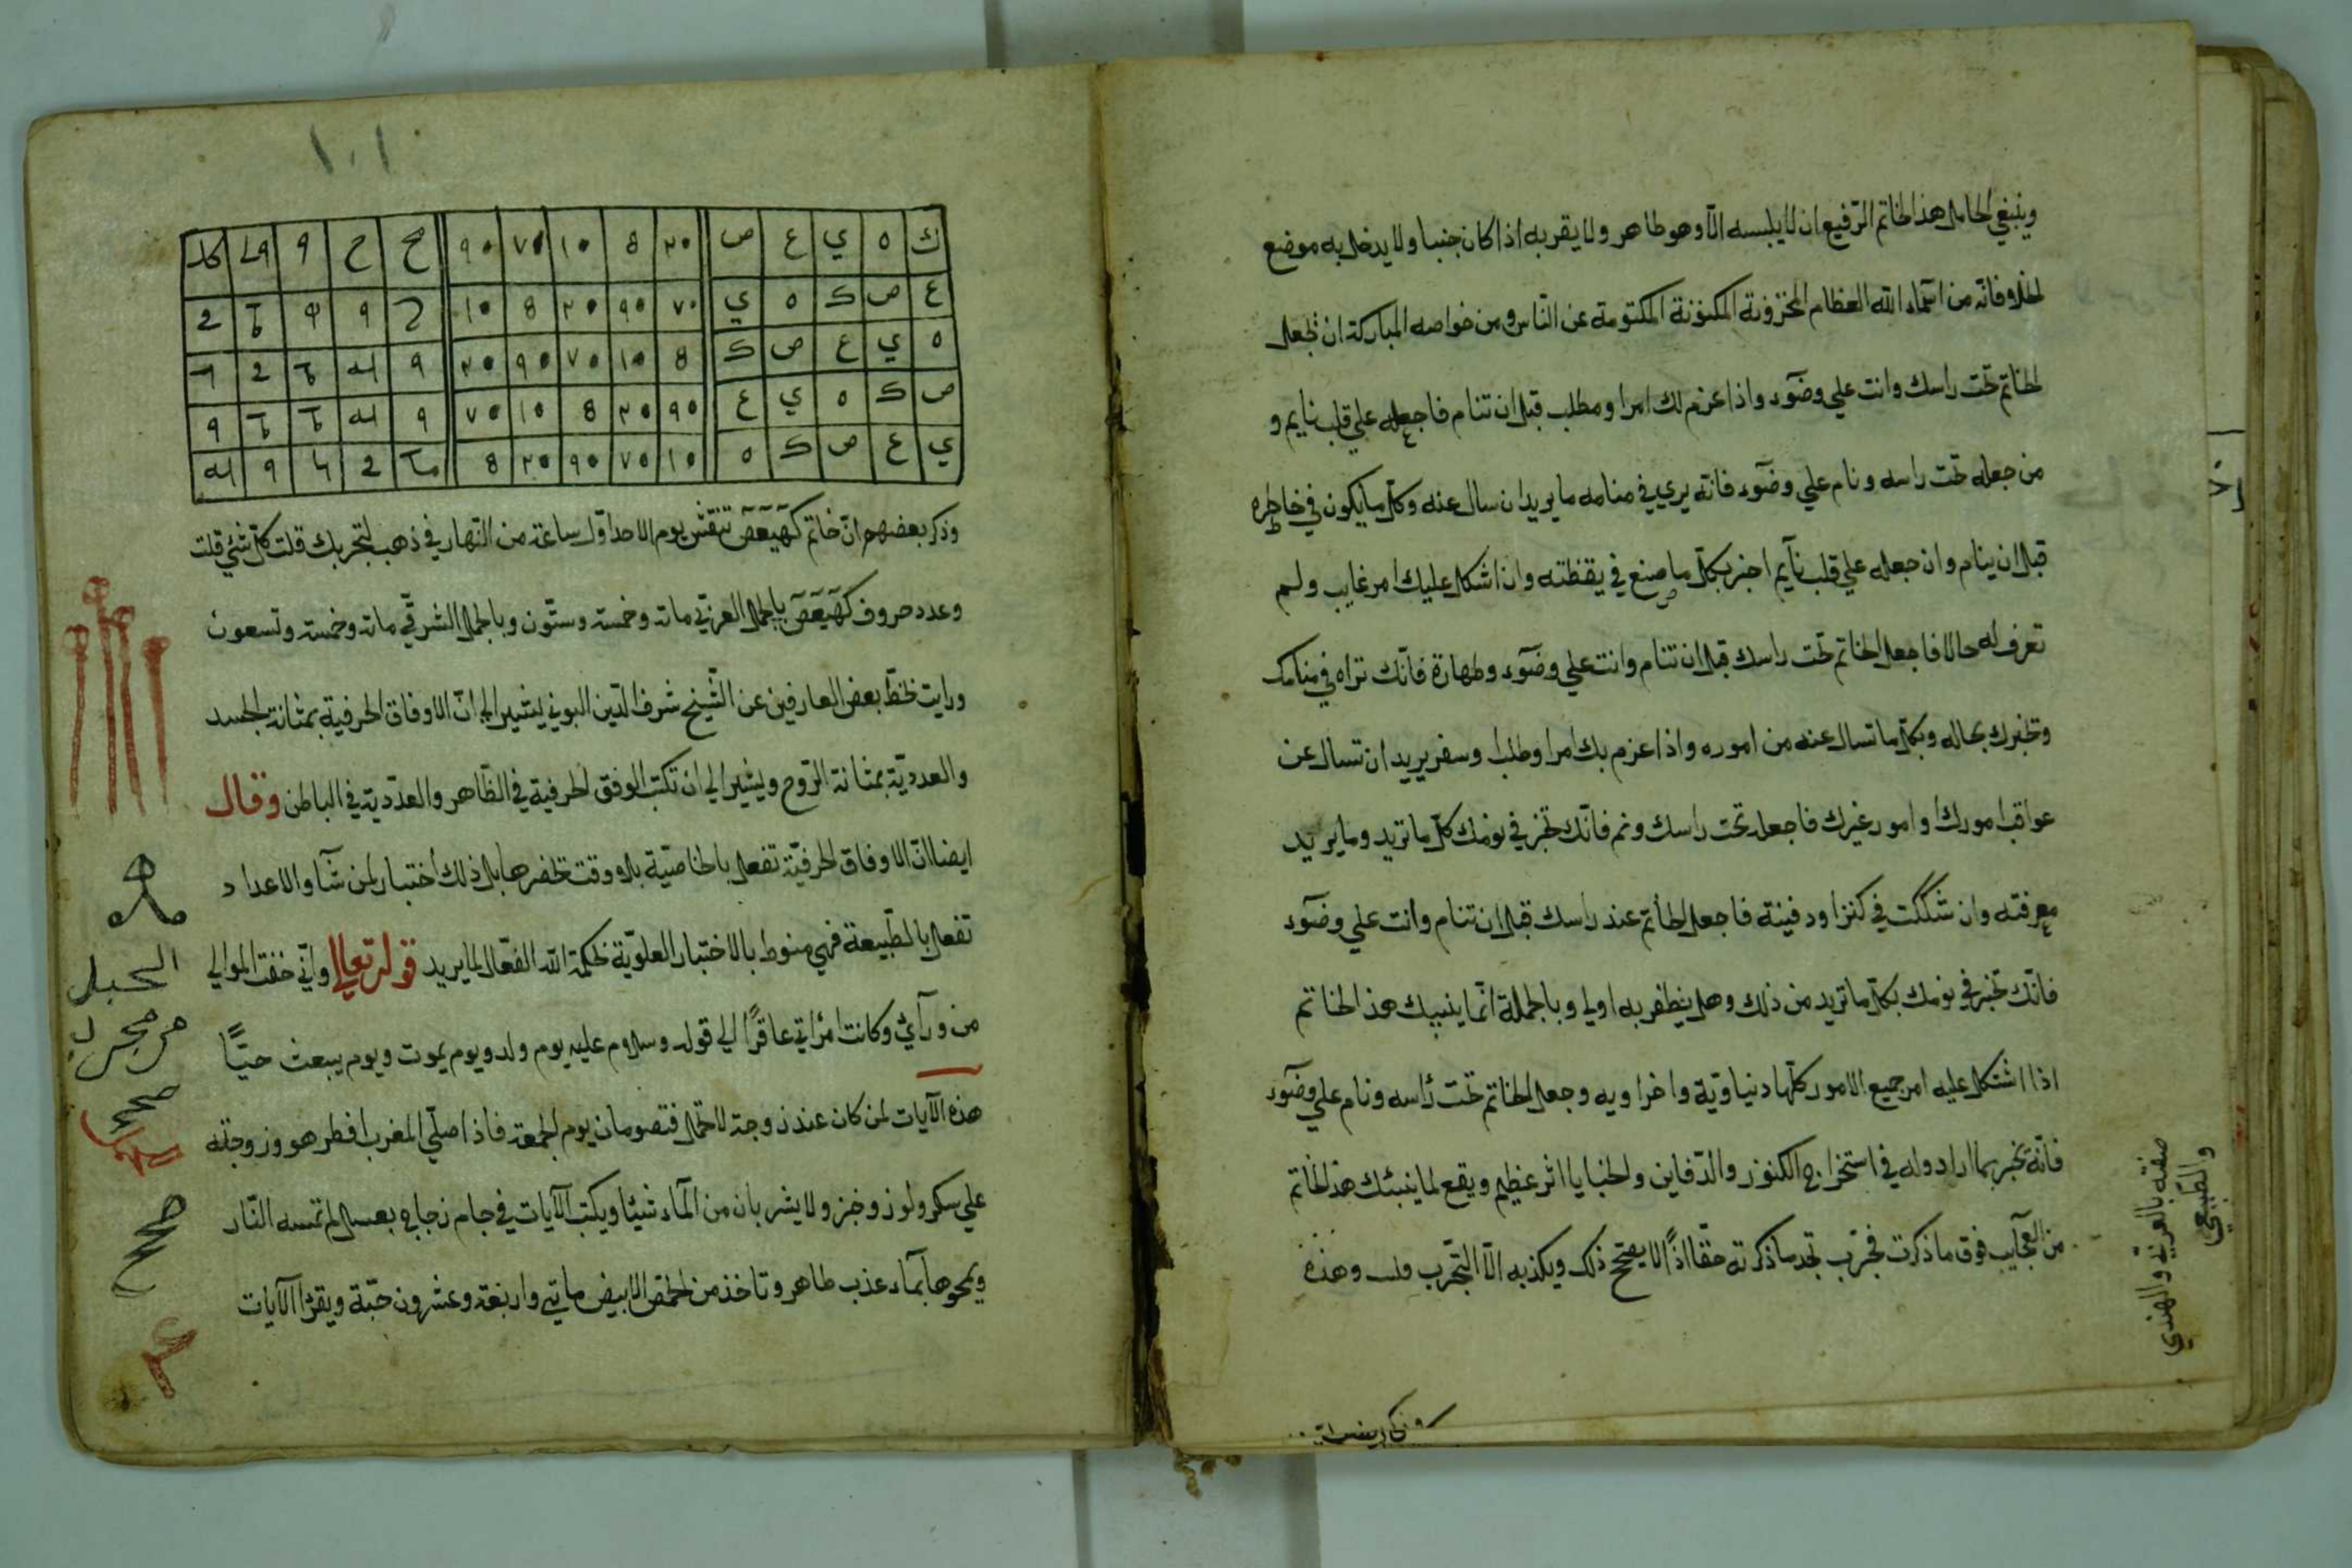 وينبغي لحامل هذا الخاتم الرّفيع ان لا يلبسه الّا وهو طاهر ولا يقربه اذا كان جنبا ولا يدخل به موضع
الخلا فانّه من اسمآء اللّه العظام المخزونة المكنونة المكتومة عن النّاس ومن خواصه المباركة ان تجعل
الخاتم تحت راسك وانت علي وضوّء واذا عزم لك امرا ومطلب قبل ان تنام فاجعله علي قلب نايم و
من جعله تحت راسه ونام علي وضوّء فانّه يري في منامه ما يريد ان سال عنه وكلّ ما يكون في خاطره
قبل ان ينام وان جعله علي قلب نآيم اخبر بكلّ ما صنع في يقظته وان اشكل عليك امر غايب ولم
تعرف له حالا فاجعل الخاتم تحت راسك قبل ان تنام وانت علي وضوّء وطهارة فانّك تراه في منامك
وتخبرك بحاله وبكلّ ما تسال عنه من اموره واذا عزم بك امرا وطلب او سفر يريد ان تسال عن
عواقب امورك وامور غيرك فاجعله تحت راسك ونم فانّك تخبر في نومك كلّ ما تريد وما يريد
معرفته وان شككت في كنز او دفينة فاجعل الخاتم عند راسك قبل ان تنام وانت علي وضوّء
فانّك تخبر في نومك بكلّ ما تريد من ذلك وهل يظفر به او لا وبالجملة انّما ينبيك هذا الخاتم
اذا اشتكل عليه امر جميع الامور كلّها دنياويّة واخراويه وجعل الخاتم تحت رأسه ونام علي وضوّء
فانّه يخبر بما اراد وله في استخراج الكنوز والدّفاين والخبايا اثر عظيم ويقع لما ينبئك هذا الخاتم
من العجآيب فوق ما ذكرت فجرّب تجد ما ذكرته حقّا اذًا لا يصحّ ذلك ويكذبه الّا التّجرب وهذه
صفته بالعربي والهندي
والطّبيعي
١٠١
ك ه ي ع ص ٢٠ 8 ١٠ ٧٠ ٩٠
ع ص ك ه ي ٧٠ ٩٠ ٢٠ 8 ١٠
ه ي ع ص ك 8 ١٠ ٧٠ ٩٠ ٢٠
ص ك ه ي ع ٩٠ ٢٠ 8 ١٠ ٧٠
ي ع ص ك ه ١٠ ٧٠ ٩٠ ٢٠ 8
وذكر بعضهم انّ خاتم كهيعص تنقش يوم الاحد اوّل ساعة من النّهار في ذهب لتجربك قلت كلّ شئ قلت
وعدد حروف كهيعص بالجمل العربّي مائة وخمسة وستّون وبالجمل الشرقّي مائة وخمسة وتسعون
ورايت بخطّ بعض العارفين عن الشّيخ شرف الدّين البوني يشير الي انّ الاوفاق الحرفية بمثابة الجسد
والعدديّة بمثابة الرّوح ويشير الي ان تكتب الوفق الحرفية في الظّاهر والعدّدية في الباطن وقال
ايضا انّ الاوفاق الحرفيّة تفعل بالخاصّية بلا وقت تحضرها بل ذلك أختبار لمن شآء والاعداد
تفعل بالطّبيعة فهي منوط بالاختبار العلويّة لحكمة اللّه الفعّال لما يريد قوله تعالي وانّي خفت الموالي
من ورآئ وكانت امرأتي عاقرًا الي قوله وسلام عليه يوم ولد ويوم يموت ويوم يبعث حيًّا
هذه الآيات لمن كان عنده زوجة لا تحمل فتصومان يوم الجمعة فاذا صلّي المغرب افطر هو وزوجته
علي سكر ولوز وخبز ولا يشربان من المآء شيئا ويكتب الآيات في جام زجاج بعسل لم تمسه النّار
ويمحوها بمآء عذب طاهر وتاخذ من الحمّص الابيض مائتي واربعة وعشرون حبّة ويقرأ الآيات
الحبل
مجرب